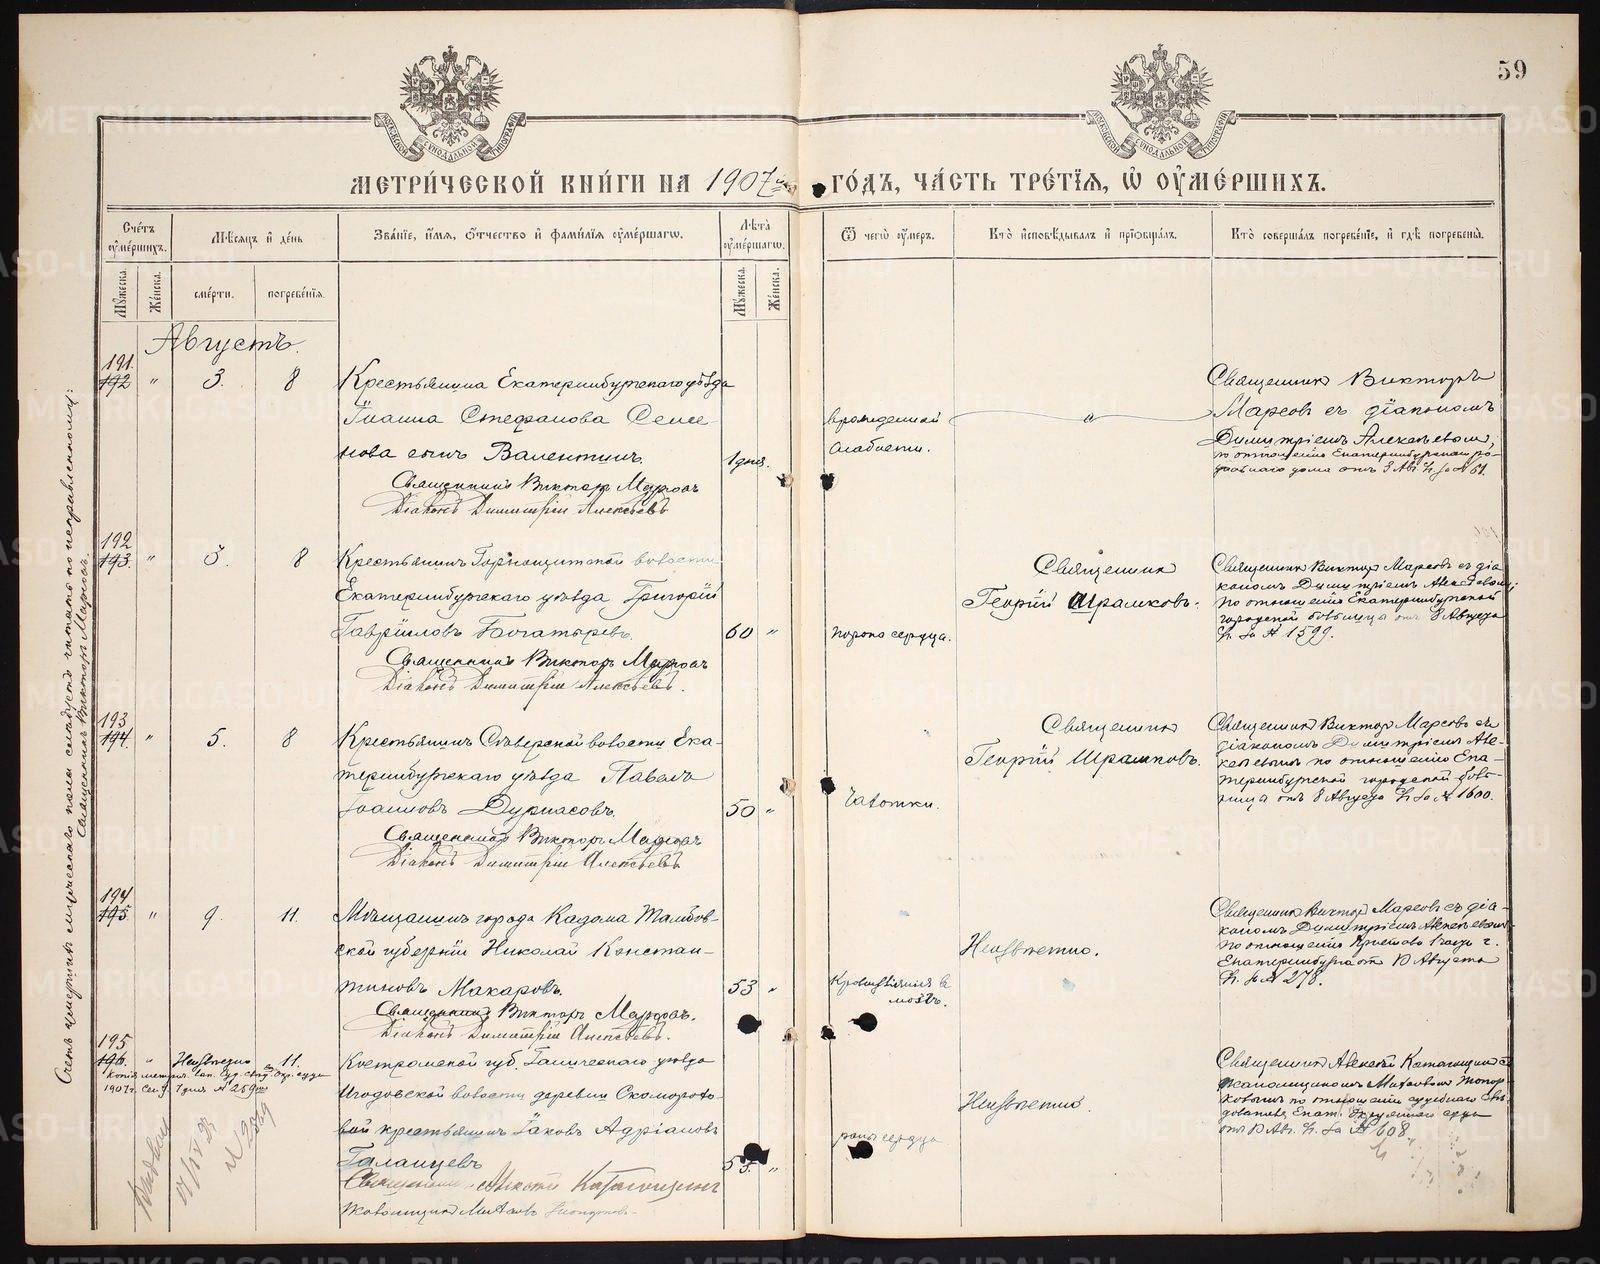 59
МЕТРИ́ЧЕСКОЙ КНИ́ГИ НА 1907 ГО́ДЪ, ЧА́СТЬ ТРЕ́ТЇѦ, Ѽ ОУ҆МЕ́РШИХЪ.
Сче́тъ оу҆ме́ршихъ.
Мꙋ́жеска. Же́нска.
Мѣ́сѧцъ и҆ де́нь
сме́рти. погребе́нїѧ.
Зва́нїе, и҆́мѧ, ѻ҆́тчество и҆ фамі́лїѧ оу҆ме́ршагѡ.
Лѣ́та оу҆ме́ршагѡ.
Мꙋ́жеска. Же́нска.
Ѿ чегѡ̀ оу҆́меръ.
Кто̀ и҆сповѣ́дывалъ и҆ прїѡбща́лъ.
Кто̀ соверша́лъ погребе́нїе, и҆ гдѣ̀ погребены̀.
Августъ.
191
192 " 3. 8
Крестьянина Екатеринбургскаго уѣзда
Іоанна Стефанова Семе-
нова сынъ Валентинъ. 1 дня.
Священникъ Викторъ Марсовъ
Діаконъ Димитрій Алексѣевъ
врожденной
слабости.
"
Священникъ Викторъ
Марсовъ съ діакономъ
Димитріемъ Алексѣевымъ,
по отношенію Екатеринбургскаго ро-
дильнаго дома отъ 3 Авг. за № 61
192
193. " 5. 8
Крестьянинъ Горнощитской волости
Екатеринбургскаго уѣзда Григорій
Гавріиловъ Богатыревъ. 60 "
Священникъ Викторъ Марсовъ
Діаконъ Димитрій Алексѣевъ.
порока сердца.
Священникъ
Георгій Шрамковъ.
Священникъ Викторъ Марсовъ съ діа-
кономъ Димитріемъ Алексѣевымъ;
по отношенію Екатеринбургской
городской больницы отъ 8 Августа
за № 1599.
193
194. " 5. 8
Крестьянинъ Сѣверской волости Ека-
теринбургскаго уѣзда Павелъ
Іоанновъ Дурпасовъ. 50 "
Священникъ Викторъ Марсовъ
Діаконъ Димитрій Алексѣевъ
Чахотки.
Священникъ
Георгій Шрамковъ.
Священникъ Викторъ Марсовъ съ
діакономъ Димитріемъ Але-
ксѣевымъ по отношенію Ека-
теринбургской городской боль-
ницы отъ 8 Августа за № 1600.
194
195. " 9. 11.
Мѣщанинъ города Кадома Тамбов-
ской губерніи Николай Констан-
тиновъ Макаровъ. 53 "
Священникъ Викторъ Марсовъ.
Діаконъ Димитрій Алексѣевъ.
Кровоизліянія въ
мозгъ.
Неизвѣстно.
Священникъ Викторъ Марсовъ съ діа-
кономъ Димитріемъ Алексѣевымъ
по отношенію Пристава 1 части г.
Екатеринбурга отъ 10 Августа
за № 278.
195
196. " Неизвѣстно 11.
1907 г. Сен. 1 дня № 259
Костромской губ. Галичскаго уѣзда
Игодовской волости деревни Скоморохо-
вой крестьянинъ Іаковъ Адріановъ
Галанцевъ 55. "
Священникъ Алексѣй
Псаломщикъ Михаилъ
раны сердца
Неизвѣстно.
Священникъ Алексѣй
псаломщикомъ Михаиломъ Топор-
ковымъ по отношенію судебнаго слѣ-
дователя Екат. Окружнаго суда
отъ 10 Авг. за № 608.
Счетъ умершихъ мужескаго пола слѣдуетъ читать по исправленному:
Священникъ Викторъ Марсовъ.
METRIKI.GASO-URAL.RU